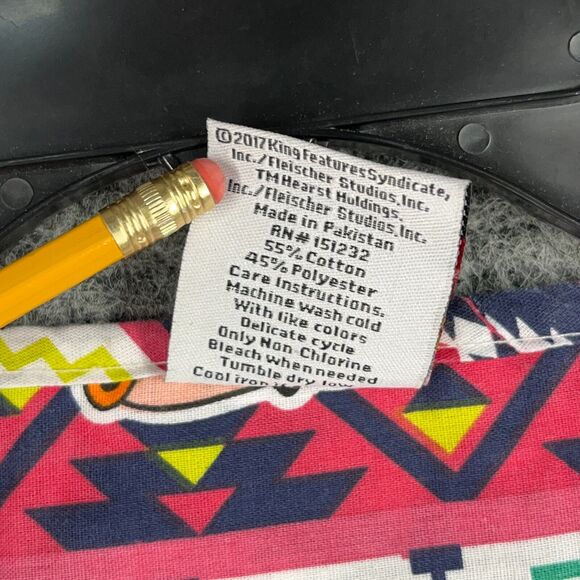 ©2017King FeaturesSyndicate,
Inc./Fleischer Studios,Inc.
TMHearst Holdings,
Inc./Fleischer Studios,Inc.
Made in Pakistan
RN# 151232
55% Cotton
45% Polyester
Care Instructions.
Machine wash cold
With like colors
Delicate cycle
Only Non-Chlorine
Bleach when needed
Tumble dry low
Cool iron